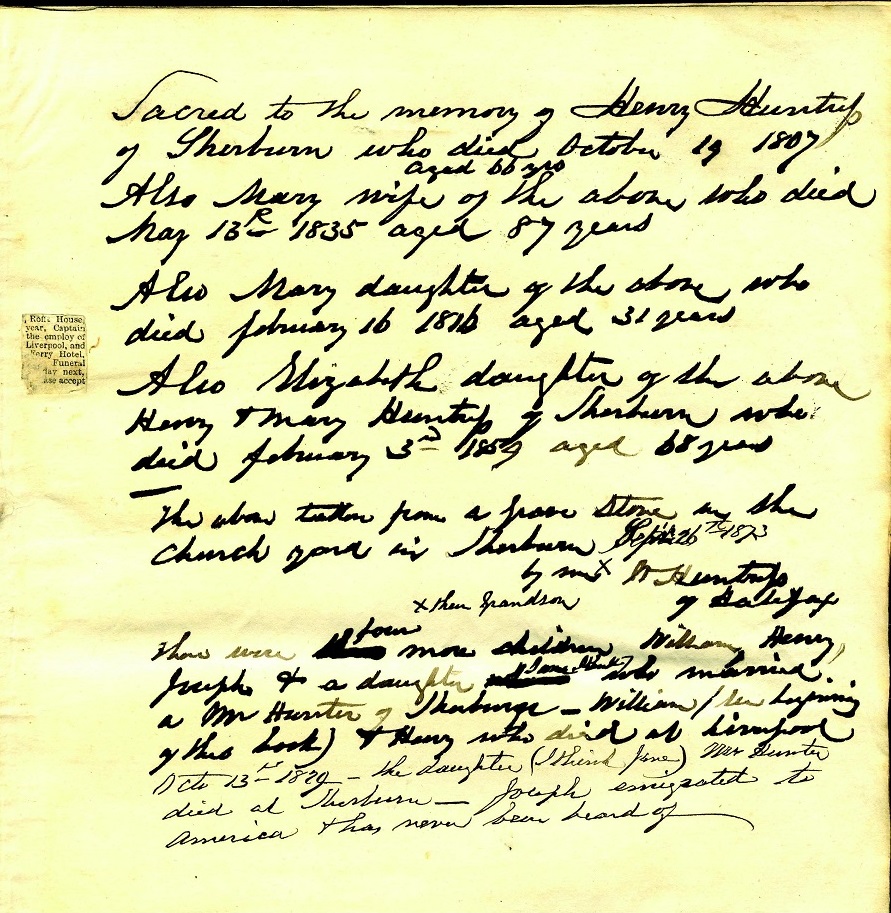 Sacred to the memory of Henry Huntrip
of Sherburn who died October 19 1807
aged 66 yrs
Also Mary wife of the above who died
May 13th 1835 aged 87 years
Also Mary daughter of the above who
died february 16 1816 aged 31 years
, Rofts House,
year, Captain
the employ of
Liverpool, and
Ferry Hotel,
Funeral
day next,
ase accept
Also Elizabeth daughter of the above
Henry & Mary Huntrip of Sherburn who
died february 3rd 1859 aged 68 years
The above taken from a grave Stone in the
Church yard in Sherburn Sept 26th 1873
by me x W Huntrip
x their Grandson of Halifax
four
There were more children William, Henry,
Joseph & a daughter who married
a Mr Hunter of Sherburn — William (see begining
of this book) & Henry who died at Liverpool
Octr 13th 1829 — the daughter (I think Jane) Mrs Hunter
died at Sherburn — Joseph emigrated to
America & has never been heard of